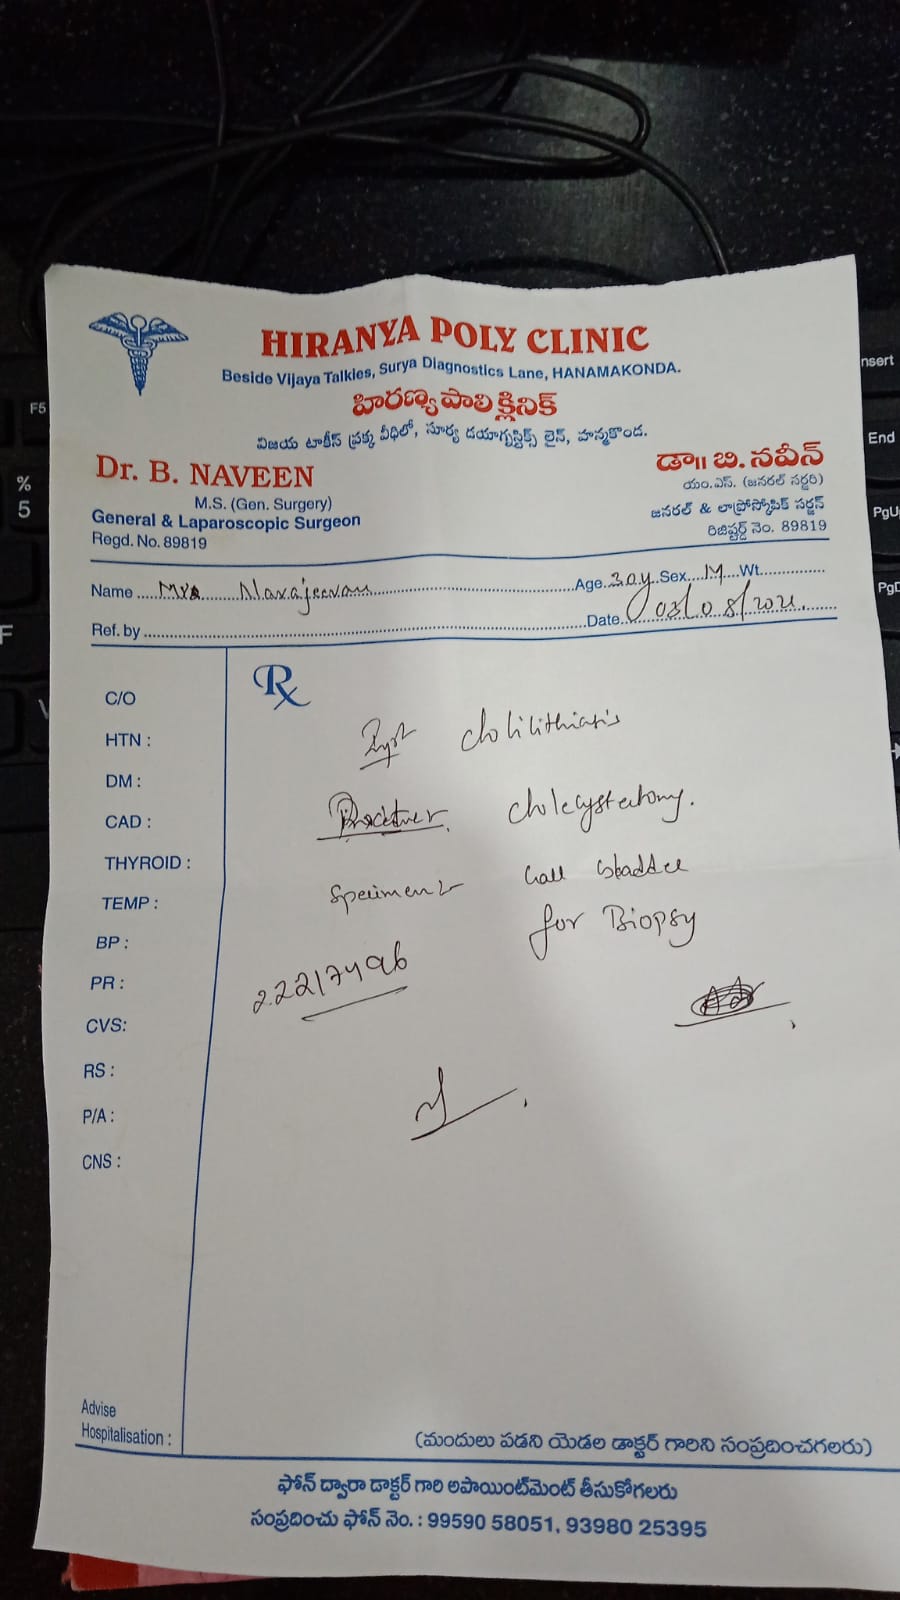 HIRANYA POLY CLINIC
Beside Vijaya Talkies, Surya Diagnostics Lane, HANAMAKONDA.
హిరణ్య పాలి క్లినిక్
విజయ టాకీస్ ప్రక్క వీధిలో, సూర్య డయాగ్నస్టిక్స్ లైన్, హన్మకొండ.
Dr. B. NAVEEN
M.S. (Gen. Surgery)
General & Laparoscopic Surgeon
Regd. No. 89819
డా॥ బి. నవీన్
యం.ఎస్. (జనరల్ సర్జరి)
జనరల్ & లాప్రోస్కోపిక్ సర్జన్
రిజిష్టర్డ్ నెం. 89819
Name Navajeevan Age 30y Sex M Wt
Ref. by Date 03/08/2021
Rx
C/O
HTN :
DM :
CAD :
THYROID :
TEMP :
BP :
PR :
CVS:
RS :
P/A :
CNS :
cholilithiasis
cholecystectomy.
specimen
for Biopsy
22217496
Advise
Hospitalisation :
(మందులు పడని యెడల డాక్టర్ గారిని సంప్రదించగలరు)
ఫోన్ ద్వారా డాక్టర్ గారి అపాయింట్‌మెంట్ తీసుకోగలరు
సంప్రదించు ఫోన్ నెం. : 99590 58051, 93980 25395
F5
%
5
F
nsert
End
PgU
PgD